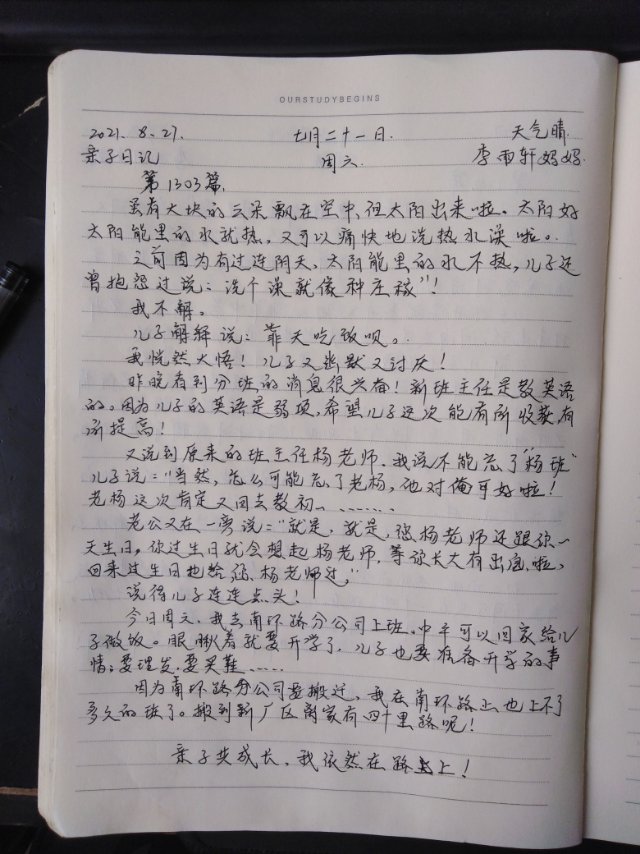 OURSTUDYBEGINS
2021. 8. 27. 七月二十一日. 天气晴.
亲子日记 周六. 李雨轩妈妈.
第1303篇.
虽有大块的云朵飘在空中,但太阳出来啦。太阳好
太阳能里的水就热,又可以痛快地洗热水澡啦。
之前因为有过连阴天,太阳能里的水不热,儿子还
曾抱怨过说:洗个澡就像种庄稼”!
我不解。
儿子解释说:靠天吃饭呗。
我恍然大悟!儿子又幽默又讨厌!
昨晚看到分班的消息很兴奋!新班主任是教英语
的。因为儿子的英语是弱项,希望儿子这次能有所收获有
所提高!
又说到原来的班主任杨老师,我说不能忘了“杨班”
儿子说:“当然,怎么可能忘了老杨,他对俺可好啦!
老杨这次肯定又回去教初一………
老公又在一旁说:“就是,就是,杨老师还跟你一
天生日。你过生日就会想起杨老师,等你长大有出息啦,
回来过生日也给 杨老师过,”
说得儿子连连点头!
今日周六,我去南环路分公司上班,中午可以回家给儿
子做饭。眼瞅着就要开学了,儿子也要准备开学的事
情:要理发,要买鞋……
因为南环路分公司要搬迁,我在南环路上也上不了
多久的班了。搬到新厂区离家有四十里路呢!
亲子共成长,我依然在路上!